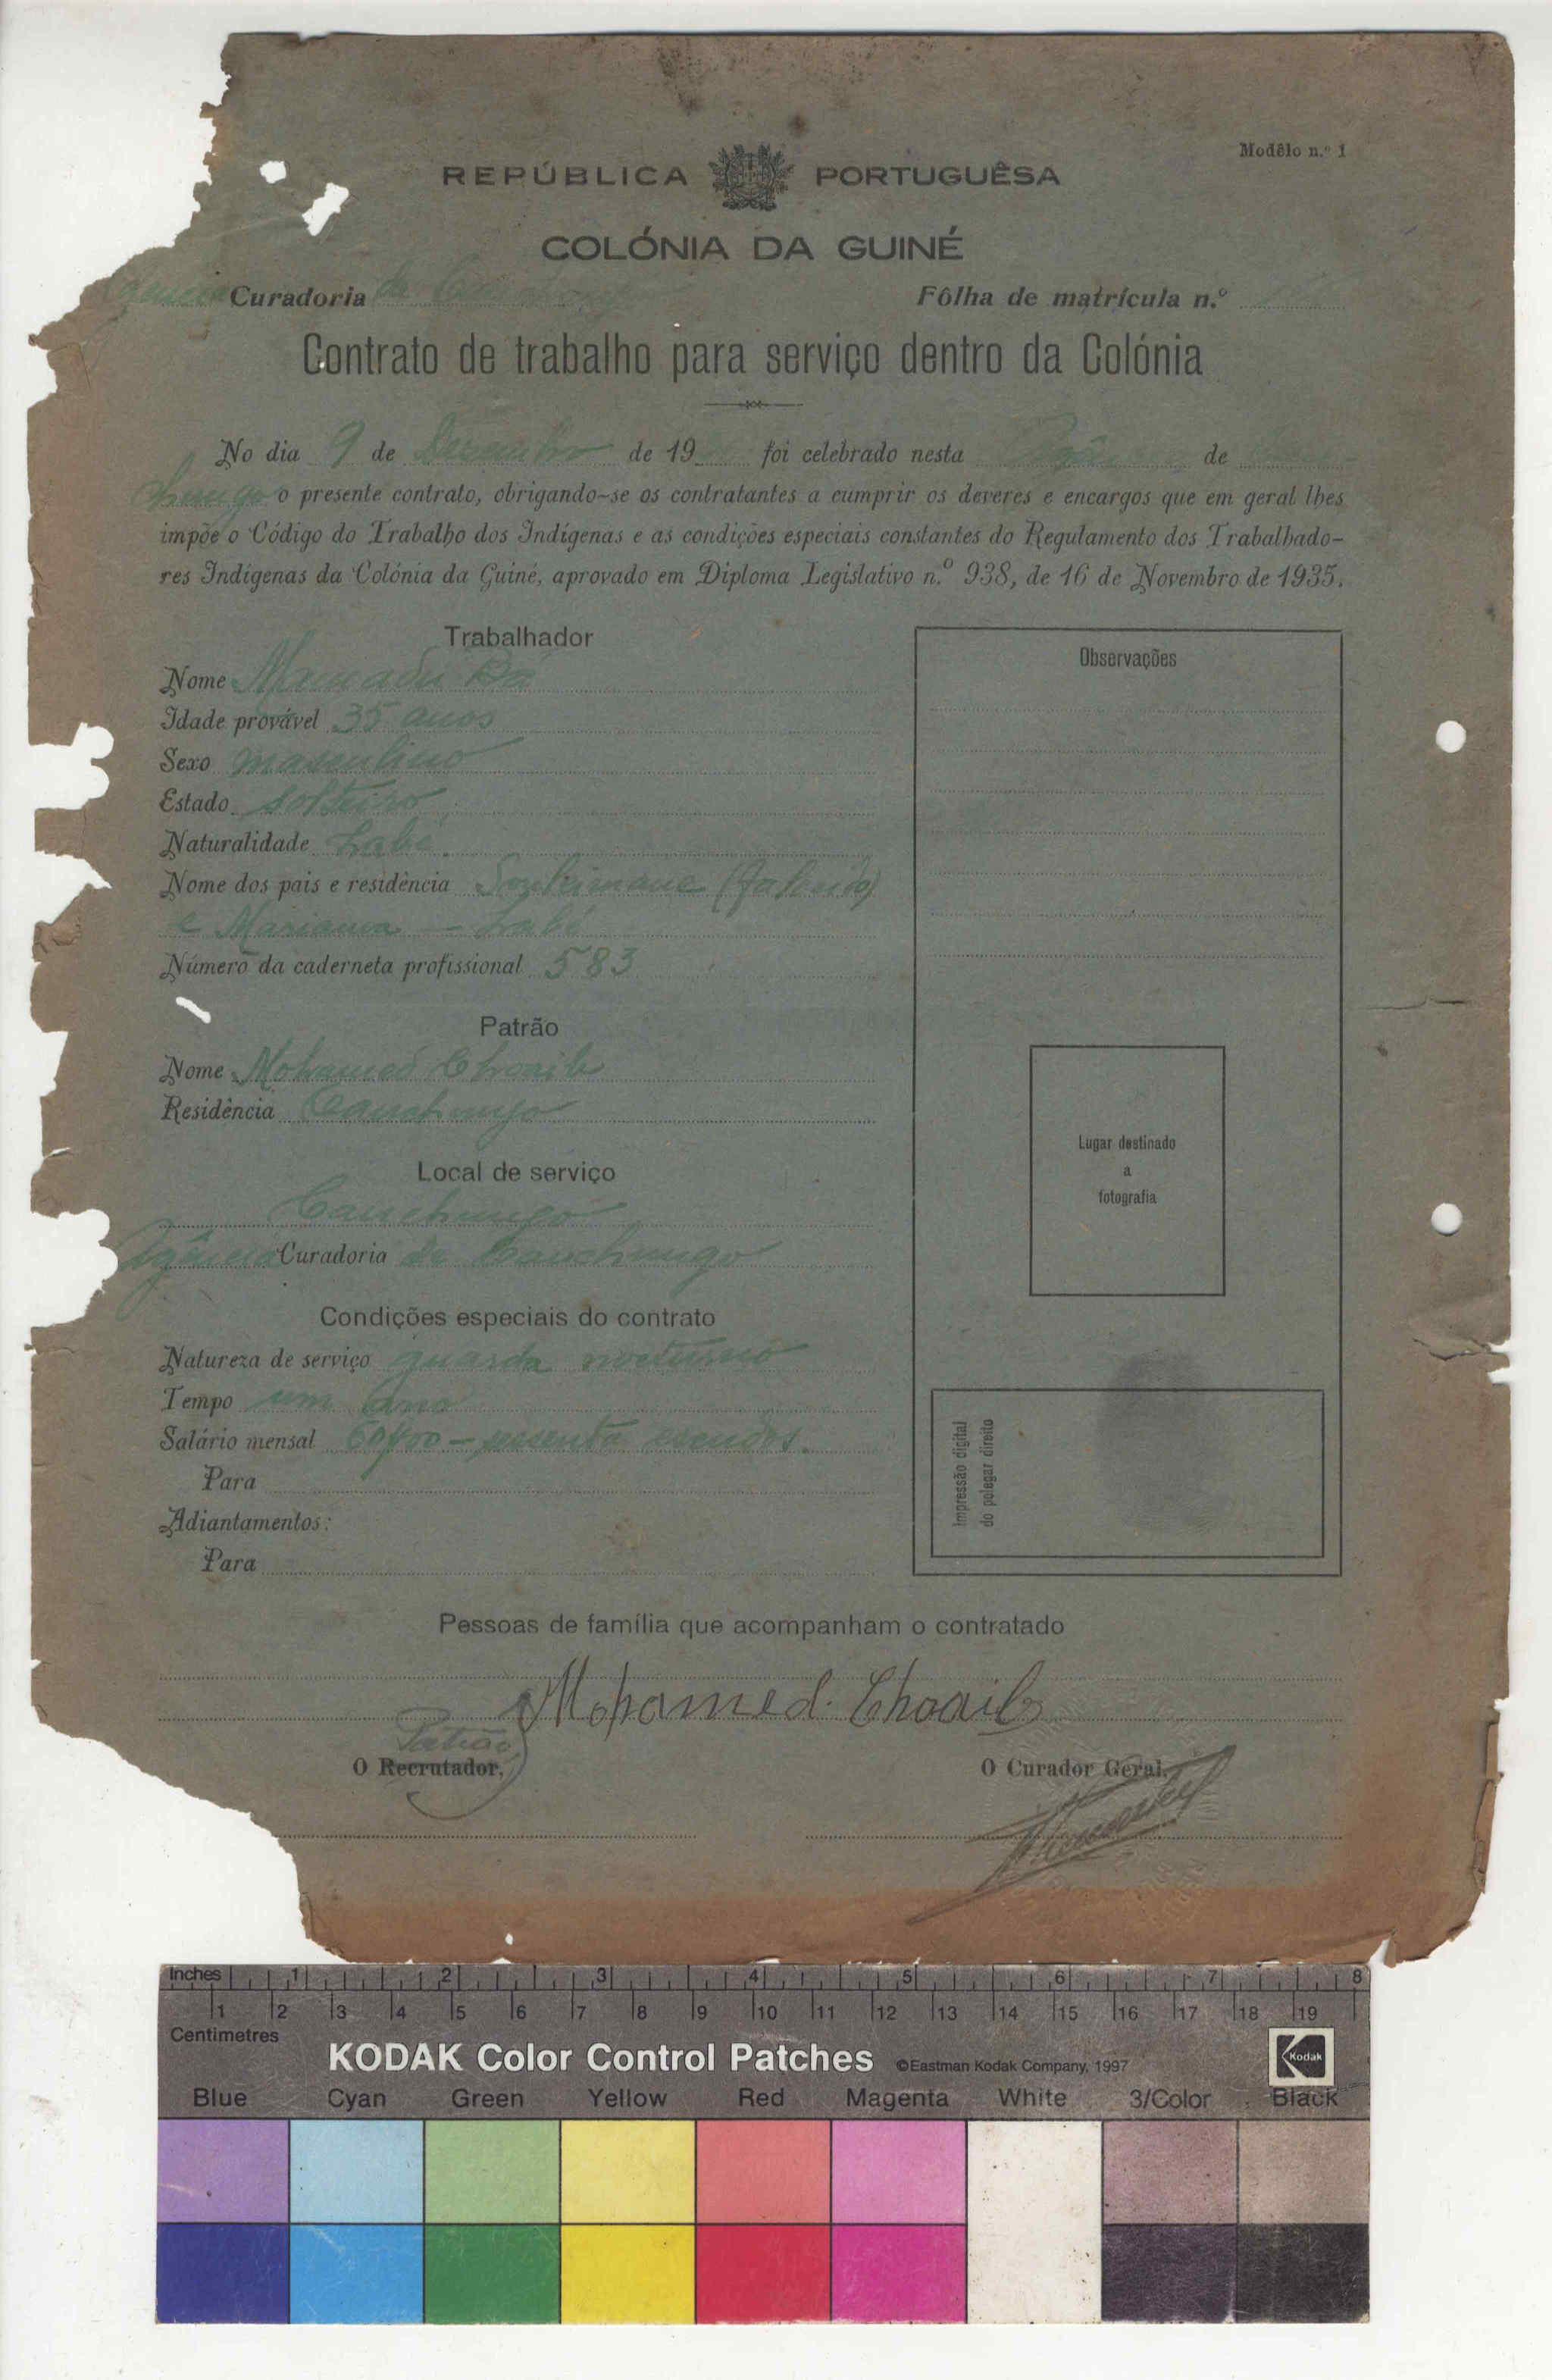 Modêlo n.º 1
REPÚBLICA PORTUGUÊSA
COLÓNIA DA GUINÉ
Curadoria de
Fôlha de matrícula n.º
Contrato de trabalho para serviço dentro da Colónia
No dia 9 de Dezembro de 19 foi celebrado nesta de
chungo o presente contrato, obrigando-se os contratantes a cumprir os deveres e encargos que em geral lhes
impõe o Código do Trabalho dos Indígenas e as condições especiais constantes do Regulamento dos Trabalhado-
res Indígenas da Colónia da Guiné, aprovado em Diploma Legislativo n.º 938, de 16 de Novembro de 1935.
Trabalhador
Nome Mamadu Bá
Idade provável 35 anos
Sexo masculino
Estado solteiro
Naturalidade Labé
Nome dos pais e residência Souleimane (falecido)
e Mariama — Labé
Número da caderneta profissional 583
Patrão
Nome Mohamed Choaib
Residência Canchungo
Local de serviço
Canchungo
Agência Curadoria de Canchungo
Condições especiais do contrato
Natureza de serviço guarda nocturno
Tempo um ano
Salário mensal 60$00 — sesenta escudos.
Para
Adiantamentos:
Para
Observações
Lugar destinado
a
fotografia
Impressão digital
do polegar direito
Pessoas de família que acompanham o contratado
Mohamed. Choaib
Patrão
O Recrutador,
O Curador Geral,
Inches 1 2 3 4 5 6 7 8
1 2 3 4 5 6 7 8 9 10 11 12 13 14 15 16 17 18 19
Centimetres
KODAK Color Control Patches ©Eastman Kodak Company, 1997 Kodak
Blue Cyan Green Yellow Red Magenta White 3/Color Black